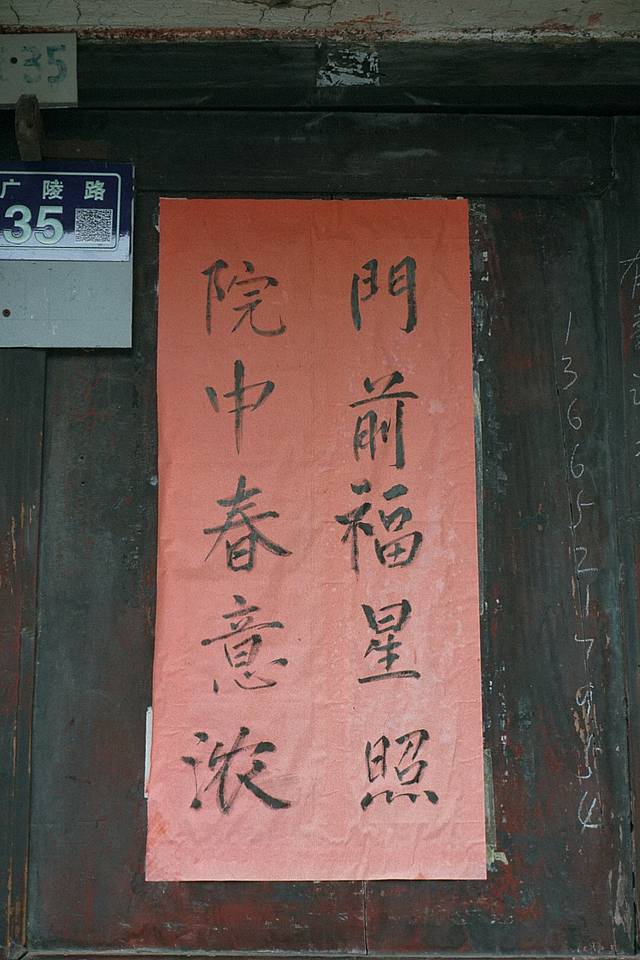 35
广陵路
35
門前福星照
院中春意浓
13665217954